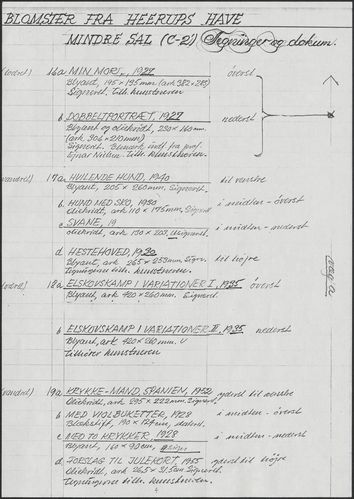 BLOMSTER FRA HEERUPS HAVE
MINDRE SAL (C-2) Tegninger og dokum.
(lodret) 16a. MIN MOR, 1927 øverst
Blyant, 195 × 195 mm (ark 382 × 285)
Signeret. Tilh. kunstneren
b. DOBBELTPORTRÆT, 1927 nederst
Blyant og oliekridt, 230 × 160 mm.
(ark 306 × 210 mm)
Signeret. Bemærk. indf. fra prof.
Ejnar Nielsen. Tilh. kunstneren.
(vandret) 17a. HVILENDE HUND, 1940 til venstre
Blyant, 205 × 260 mm, Signeret.
b. HUND MED SKO, 1930 i midten - øverst
Oliekridt, ark 110 × 175 mm, Signeret
c. SVANE, 19 i midten - nederst
Oliekridt, ark 130 × 203, Usigneret.
d. HESTEHOVED, 1930 til højre
Blyant, ark 265 × 253 mm Sign.
Tegningerne tilh. kunstneren.
(lodret) 18a. ELSKOVSKAMP I VARIATIONER I, 1935 øverst
Blyant, ark 420 × 260 mm. Signeret.
væg a.
b ELSKOVSKAMP I VARIATIONER II, 1935 nederst
Blyant, ark 420 × 260 mm. U
Tilhører kunstneren
(vandret) 19a KRYKKE-MAND, SPANIEN, 1952 yderst til venstre
Oliekridt, ark 295 × 222 mm, Signeret.
b MED VIOLBUKETTER, 1928 i midten - øverst
Blækstift, 190 × 124 mm, dateret.
c MED TO KRYKKER, 1928 i midten - nederst
Blyant, 161 × 90 cm,
d FORSLAG TIL JULEKORT, 1955 yderst til højre
Oliekridt, ark 265 × 315 mm Signeret.
Tegningerne tilh. kunstneren.